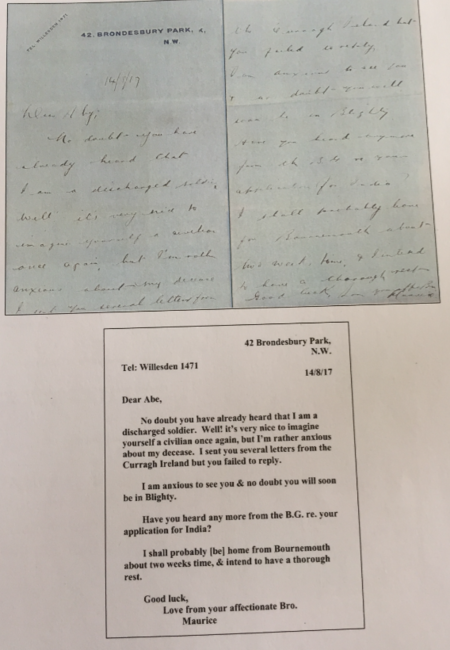 TEL. WILLESDEN 1471
42, BRONDESBURY PARK,
N.W.
14/8/17
No doubt you have
already heard that
I am a discharged
Well! it's very nice to
imagine yourself a civilian
once again, but I'm rather
anxious about my
I sent you several letters from
the Curragh Ireland but
you failed to reply.
I am anxious to see you
& no doubt you will
soon be in Blighty.
Have you heard any more
from the B.G. re your
application for India?
I shall probably home
from Bournemouth about
two weeks time, & intend
to have a thorough rest.
Good luck, Love from your
Maurice
42 Brondesbury Park,
N.W.
Tel: Willesden 1471
14/8/17
Dear Abe,
No doubt you have already heard that I am a
discharged soldier. Well! it's very nice to imagine
yourself a civilian once again, but I'm rather anxious
about my decease. I sent you several letters from the
Curragh Ireland but you failed to reply.
I am anxious to see you & no doubt you will soon
be in Blighty.
Have you heard any more from the B.G. re. your
application for India?
I shall probably [be] home from Bournemouth
about two weeks time, & intend to have a thorough
rest.
Good luck,
Love from your affectionate Bro.
Maurice